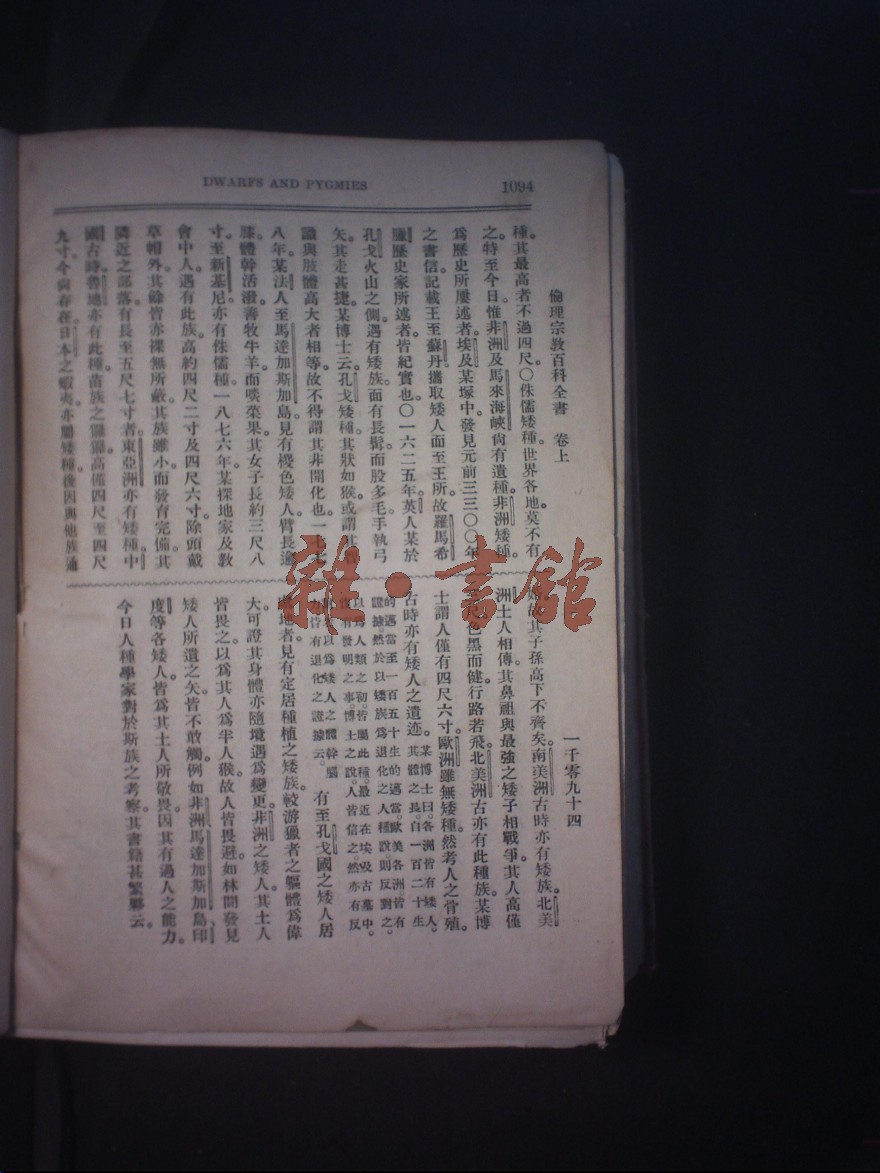 DWARFS AND PYGMIES
1094
倫理宗教百科全書 卷上
一千零九十四
種。其最高者不過四尺。○侏儒矮種。世界各地。莫不有
之。特至今日。惟非洲及馬來海峽。尙有遺種。非洲矮種。
爲歷史所屢述者。埃及某塚中。發見元前三三〇〇年
之書信。記載王至蘇丹攜取矮人而至王所。故羅馬希
臘歷史家所述者。皆紀實也。○一六二五年。英人某。於
孔戈火山之側。遇有矮族。面有長髯而股多毛。手執弓
矢。其走甚捷。某博士云。孔戈矮種。其狀如猴。或謂其智
識與肢體高大者相等。故不得謂其非開化也。一七七
八年。某法人至馬達加斯加島。見有椶色矮人。臂長逾
膝。體幹活潑。善牧牛羊。而啖菜果。其女子長約三尺八
寸。至新基尼。亦有侏儒種。一八七六年。某探地家及敎
會中人。遇有此族。高約四尺二寸及四尺六寸。除頭戴
草帽外。其餘皆赤裸無所蔽。其族雖小而發育完備。其
隣近之部落。有長至五尺七寸者。東亞洲亦有矮種。中
國古時魯地。亦有此種。苗族之玀玀。高僅四尺至四尺
九寸。今尙存在。日本之蝦夷。亦屬矮種。後因與他族通
婚。故其子孫高下不齊矣。南美洲古時亦有矮族。北美
洲土人相傳。其鼻祖與最強之矮子相戰爭。其人高僅
色黑而健。行路若飛。北美洲古亦有此種族。某博
士謂人僅有四尺六寸。歐洲雖無矮種。然考人之骨殖。
古時亦有矮人之遺迹。
某博士曰。各洲皆有矮人。
其體之長。自一百二十生
的邁當至一百五十生的邁當。歐美各洲皆有
證據。然於以矮族爲退化之人種說。則反對之。
以爲人類之初。皆屬此種。最近在埃及古墓中。
復有發明之事。博士之說。人皆信之。然亦有反
以爲矮人之體幹腦
力。皆有退化之證據云。
有至孔戈國之矮人居
處地者。見有定居種植之矮族。較游獵者之軀體爲偉
大。可證其身體亦隨境遇爲變更。非洲之矮人。其土人
皆畏之。以爲其人爲半人猴。故人皆畏避。如林間發見
矮人所遺之矢。皆不敢觸。例如非洲、馬達加斯加島、印
度等各矮人。皆爲其土人所敬畏。因其有過人之能力。
今日人種學家對於斯族之考察。其書籍甚繁夥云。
雜·書館